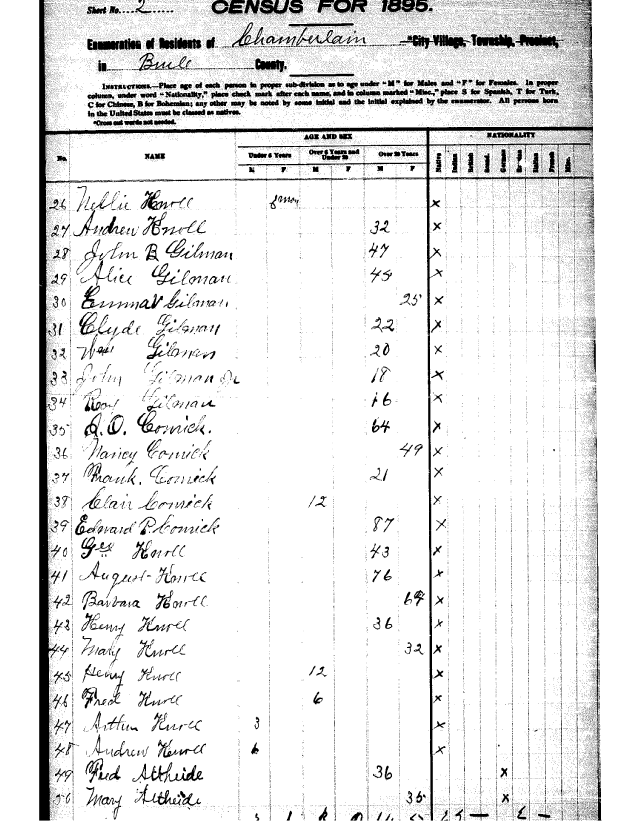 Sheet No. 2 CENSUS FOR 1895.
Enumeration of Residents of Chamberlain City Village, Township, Precinct,
in Brule County.
INSTRUCTIONS.—Place age of each person in proper sub-division as to age under "M" for Males and "F" for Females. In proper
column, under word "Nationality," place check mark after each name, and in column marked "Misc," place S for Spanish, T for Turk,
C for Chinese, B for Bohemian; any other may be noted by some initial and the initial explained by the enumerator. All persons born
in the United States must be classed as natives.
*Cross out words not needed.
No. NAME AGE AND SEX NATIONALITY
Under 6 Years Over 6 Years and Under 20 Over 20 Years
M F M F M F
26 Nellie Knoll x
27 Andrew Knoll 32 x
28 John B Gilman 47 x
29 Alice Gilman 45 x
30 Emma Gilman 25 x
31 Clyde Gilman 22 x
32 Gilman 20 x
33 John Gilman Jr 18 x
34 Roy Gilman 16 x
35 Comick. 64 x
36 Nancy Comick 49 x
37 Frank. Comick 21 x
38 Clair Comick 12 x
39 Edward P. Comick 87 x
40 Geo Knoll 43 x
41 August Knoll 76 x
42 Barbara Knoll x
43 Henry Knoll 36 x
44 Mary Knoll 32 x
45 Henry Knoll 12 x
46 Fred Knoll 6 x
47 Arthur Knoll 3 x
48 Andrew Knoll 6 x
49 Fred Altheide 36 x
50 Mary Altheide 35 x